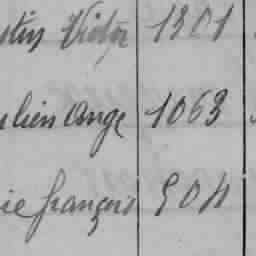 stin Victor 1301
ulien Ange 1063
ie françois 904